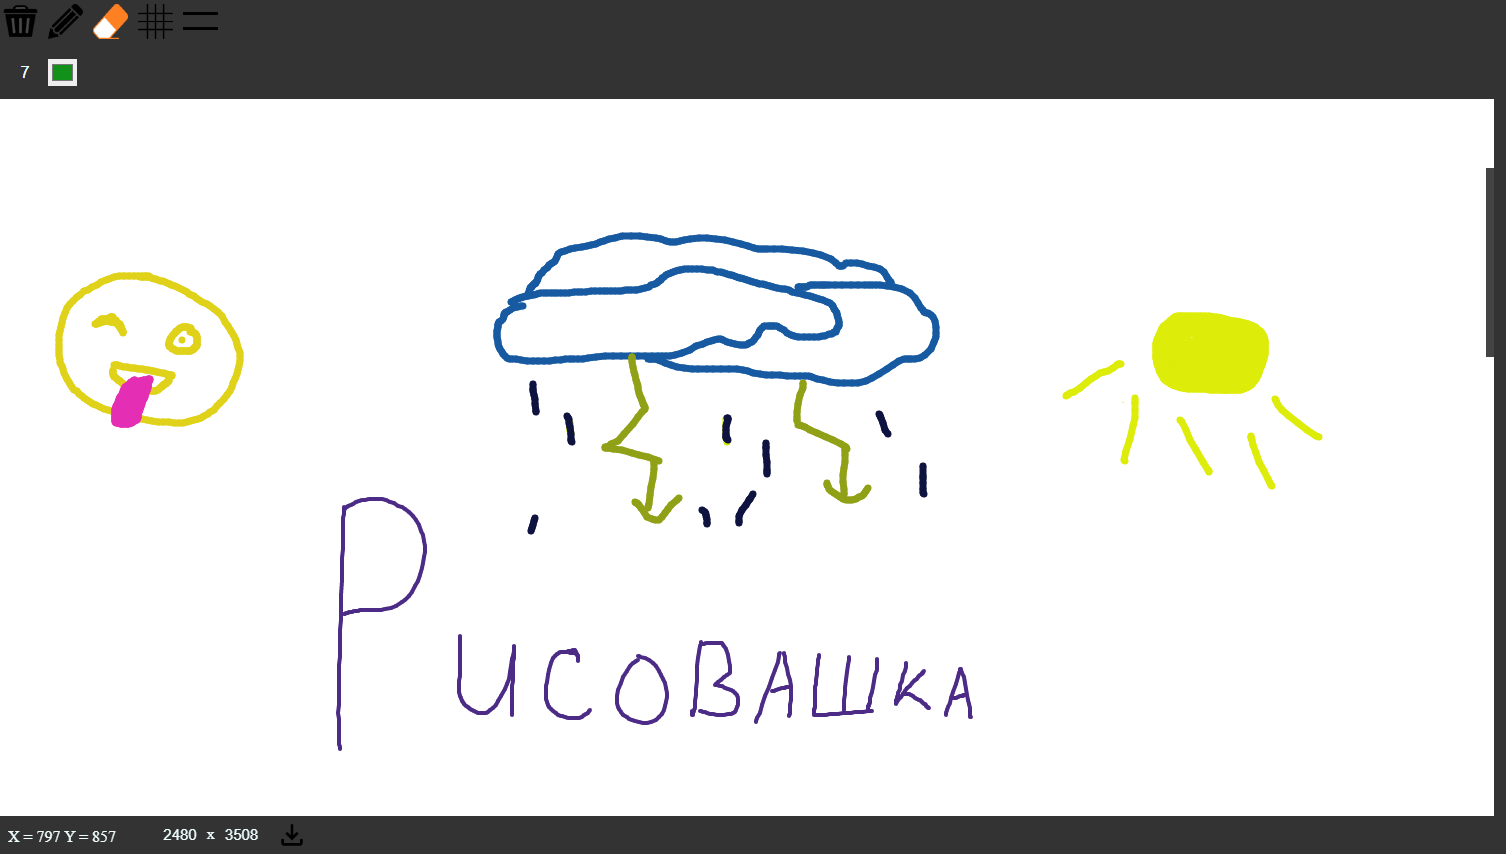 7
Рисовашка
X = 797 Y = 857
2480 x 3508